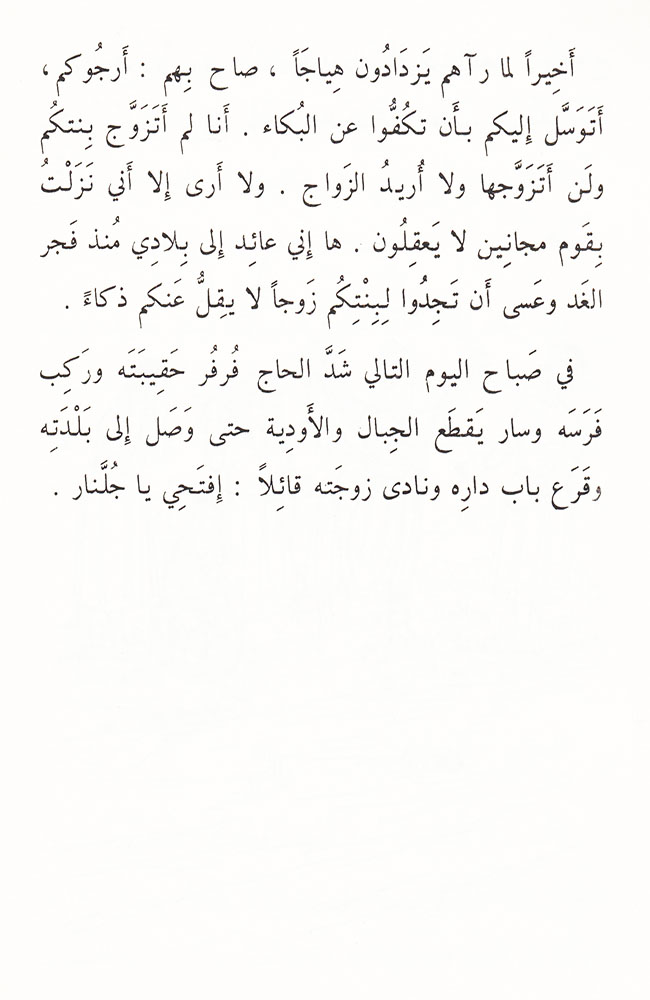 أَخِيراً لما رآهم يَزدَادُون هِياجَاً ، صاح بِهم : أَرجُوكم،
أَتَوَسَّل إِليكم بأَن تكُفُّوا عن البُكاء . أَنا لم أَتَزَوَّج بِنتكُم
ولَن أَتَزَوَّجها ولا أُريدُ الزَواج . ولا أَرى إِلا أَني نَزَلْتُ
بِقَوم مجانِين لا يَعقِلُون . ها إِني عائِد إِلى بِلادِي مُنذ فَجر
الغَد وعَسى أَن تَجِدُوا لِبِنْتِكُم زَوجاً لا يقِلُّ عَنكم ذكاءً .
في صَباح اليوم التالي شَدَّ الحاج فُرفُر حَقِيبَتَه ورَكِب
فَرَسَه وسار يَقطَع الجِبال والأَودِية حتى وَصَل إِلى بَلْدَتِه
وقَرَع باب دارِه ونادى زوجَته قائِلاً : إِفتَحِي يا جُلَّنار .